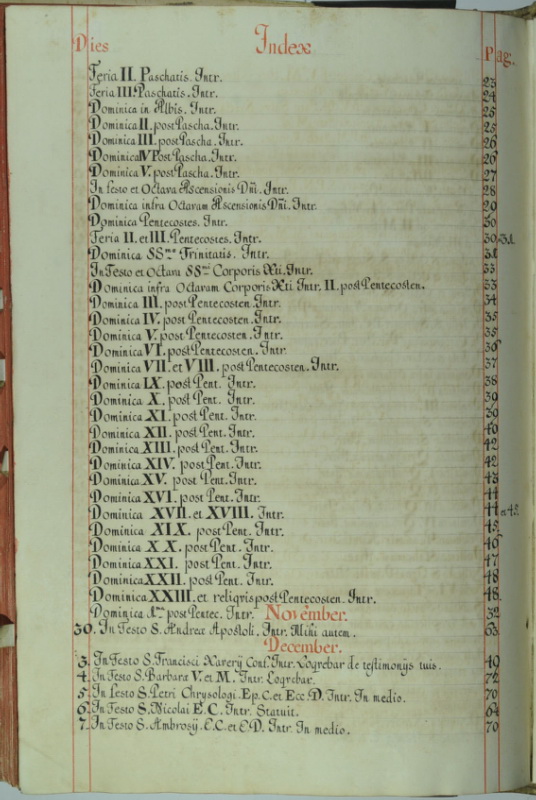 Dies Index Pag.
Feria II. Paschatis. Intr. 23
Feria III. Paschatis. Intr. 24
Dominica in Albis. Intr. 25
Dominica II. post Pascha. Intr. 25
Dominica III. post Pascha. Intr. 26
Dominica IV Post Pascha. Intr. 26
Dominica V. post Pascha. Intr. 27
In Festo et Octava Ascensionis Dñi. Intr. 28
Dominica infra Octavam Ascensionis Dñi. Intr. 29
Dominica Pentecostes. Intr. 30
Feria II. et III. Pentecostes. Intr. 30, 31.
Dominica SS.mae Trinitatis. Intr. 31
In Festo et Octava SS.mi Corporis Xti. Intr. 33
Dominica infra Octavam Corporis Xti Intr. II. post Pentecosten. 33
Dominica III. post Pentecosten. Intr. 34
Dominica IV. post Pentecosten. Intr. 35
Dominica V. post Pentecosten. Intr. 35
Dominica VI. post Pentecosten. Intr. 36
Dominica VII. et VIII. post Pentecosten. Intr. 37
Dominica IX. post Pent. Intr. 38
Dominica X. post Pent. Intr. 39
Dominica XI. post Pent. Intr. 39
Dominica XII. post Pent. Intr. 40
Dominica XIII. post Pent. Intr. 42
Dominica XIV. post Pent. Intr. 42
Dominica XV. post Pent. Intr. 43
Dominica XVI. post Pent. Intr. 44
Dominica XVII. et XVIII. Intr. 44 et 45.
Dominica XIX. post Pent. Intr. 45.
Dominica XX. post Pent. Intr. 46
Dominica XXI. post Pent. Intr. 47
Dominica XXII. post Pent. Intr. 48
Dominica XXIII. et reliqvis post Pentecosten. Intr. 48.
Dominica I.ma post Pentec. Intr. November. 32
30. In Festo S. Andreæ Apostoli. Intr. Mihi autem. 63
December.
3. In Festo S. Francisci Xaverij Conf. Intr. Loqvebar de testimonijs tuis. 49
4. In Festo S. Barbara V. et M. Intr. Loqvebar. 72
5. In Festo S. Petri Chrysologi. Ep. C. et Ecc D. Intr. In medio. 70
6. In Festo S. Nicolai E. C. Intr. Statuit. 64
7. In Festo S. Ambrosij. E. C. et E D. Intr. In medio. 70